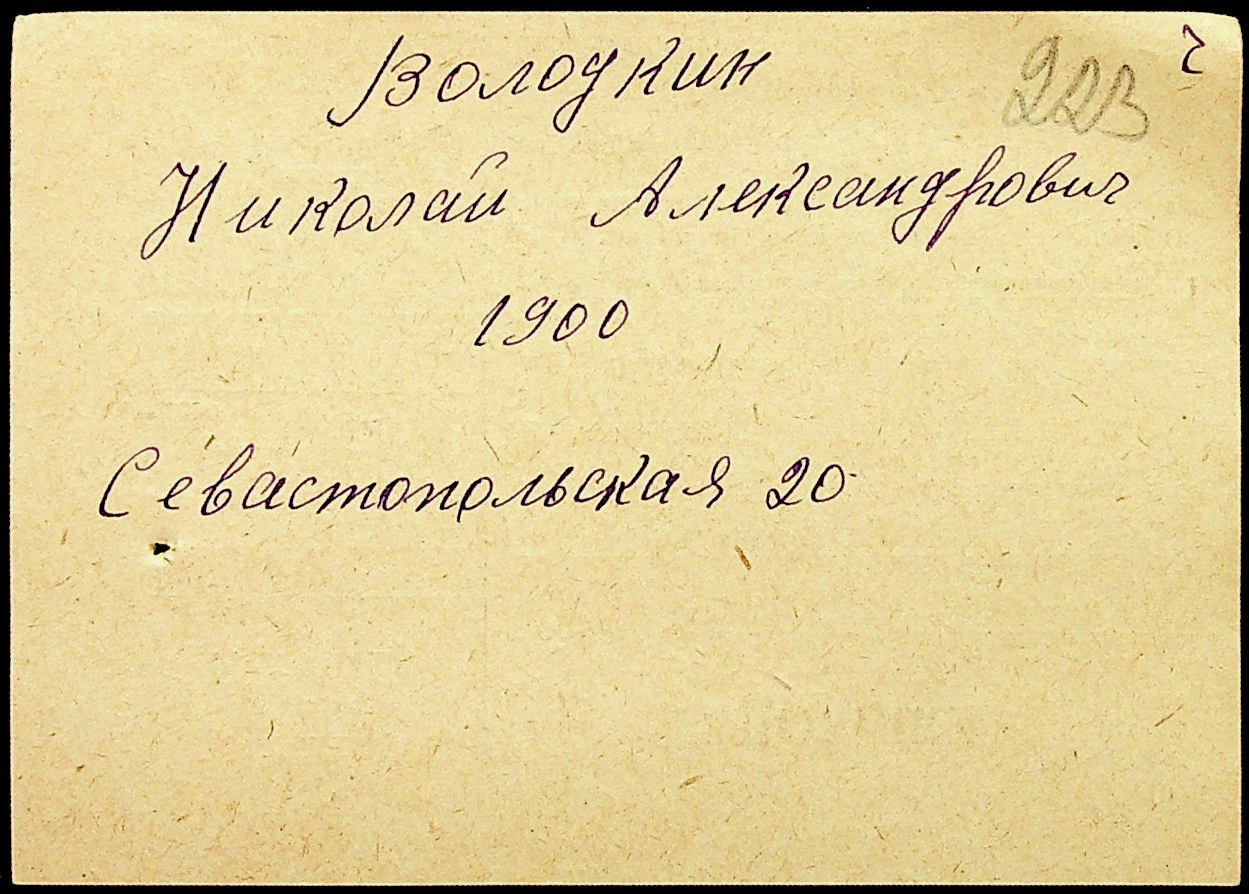 Володкин
Николай Александрович
1900
Севастопольская 20